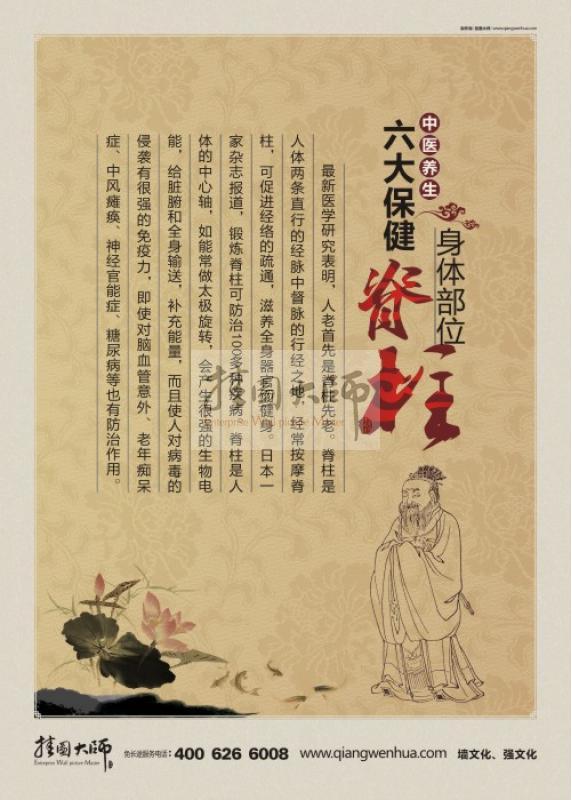 www.qiangwenhua.com
中医养生
六大保健
身体部位
脊柱
最新医学研究表明，人老首先是脊柱先老。脊柱是
人体两条直行的经脉中督脉的行经之地，经常按摩脊
柱，可促进经络的疏通，滋养全身器官而健身。日本一
家杂志报道，锻炼脊柱可防治100多种疾病。脊柱是人
体的中心轴，如能常做太极旋转，会产生很强的生物电
能，给脏腑和全身输送，补充能量，而且使人对病毒的
侵袭有很强的免疫力，即使对脑血管意外、老年痴呆
症、中风瘫痪、神经官能症、糖尿病等也有防治作用。
挂图大师
Enterprise Wall picture Master
挂图大师
Enterprise Wall picture Master
免长途服务电话：400 626 6008
www.qiangwenhua.com
墙文化、强文化